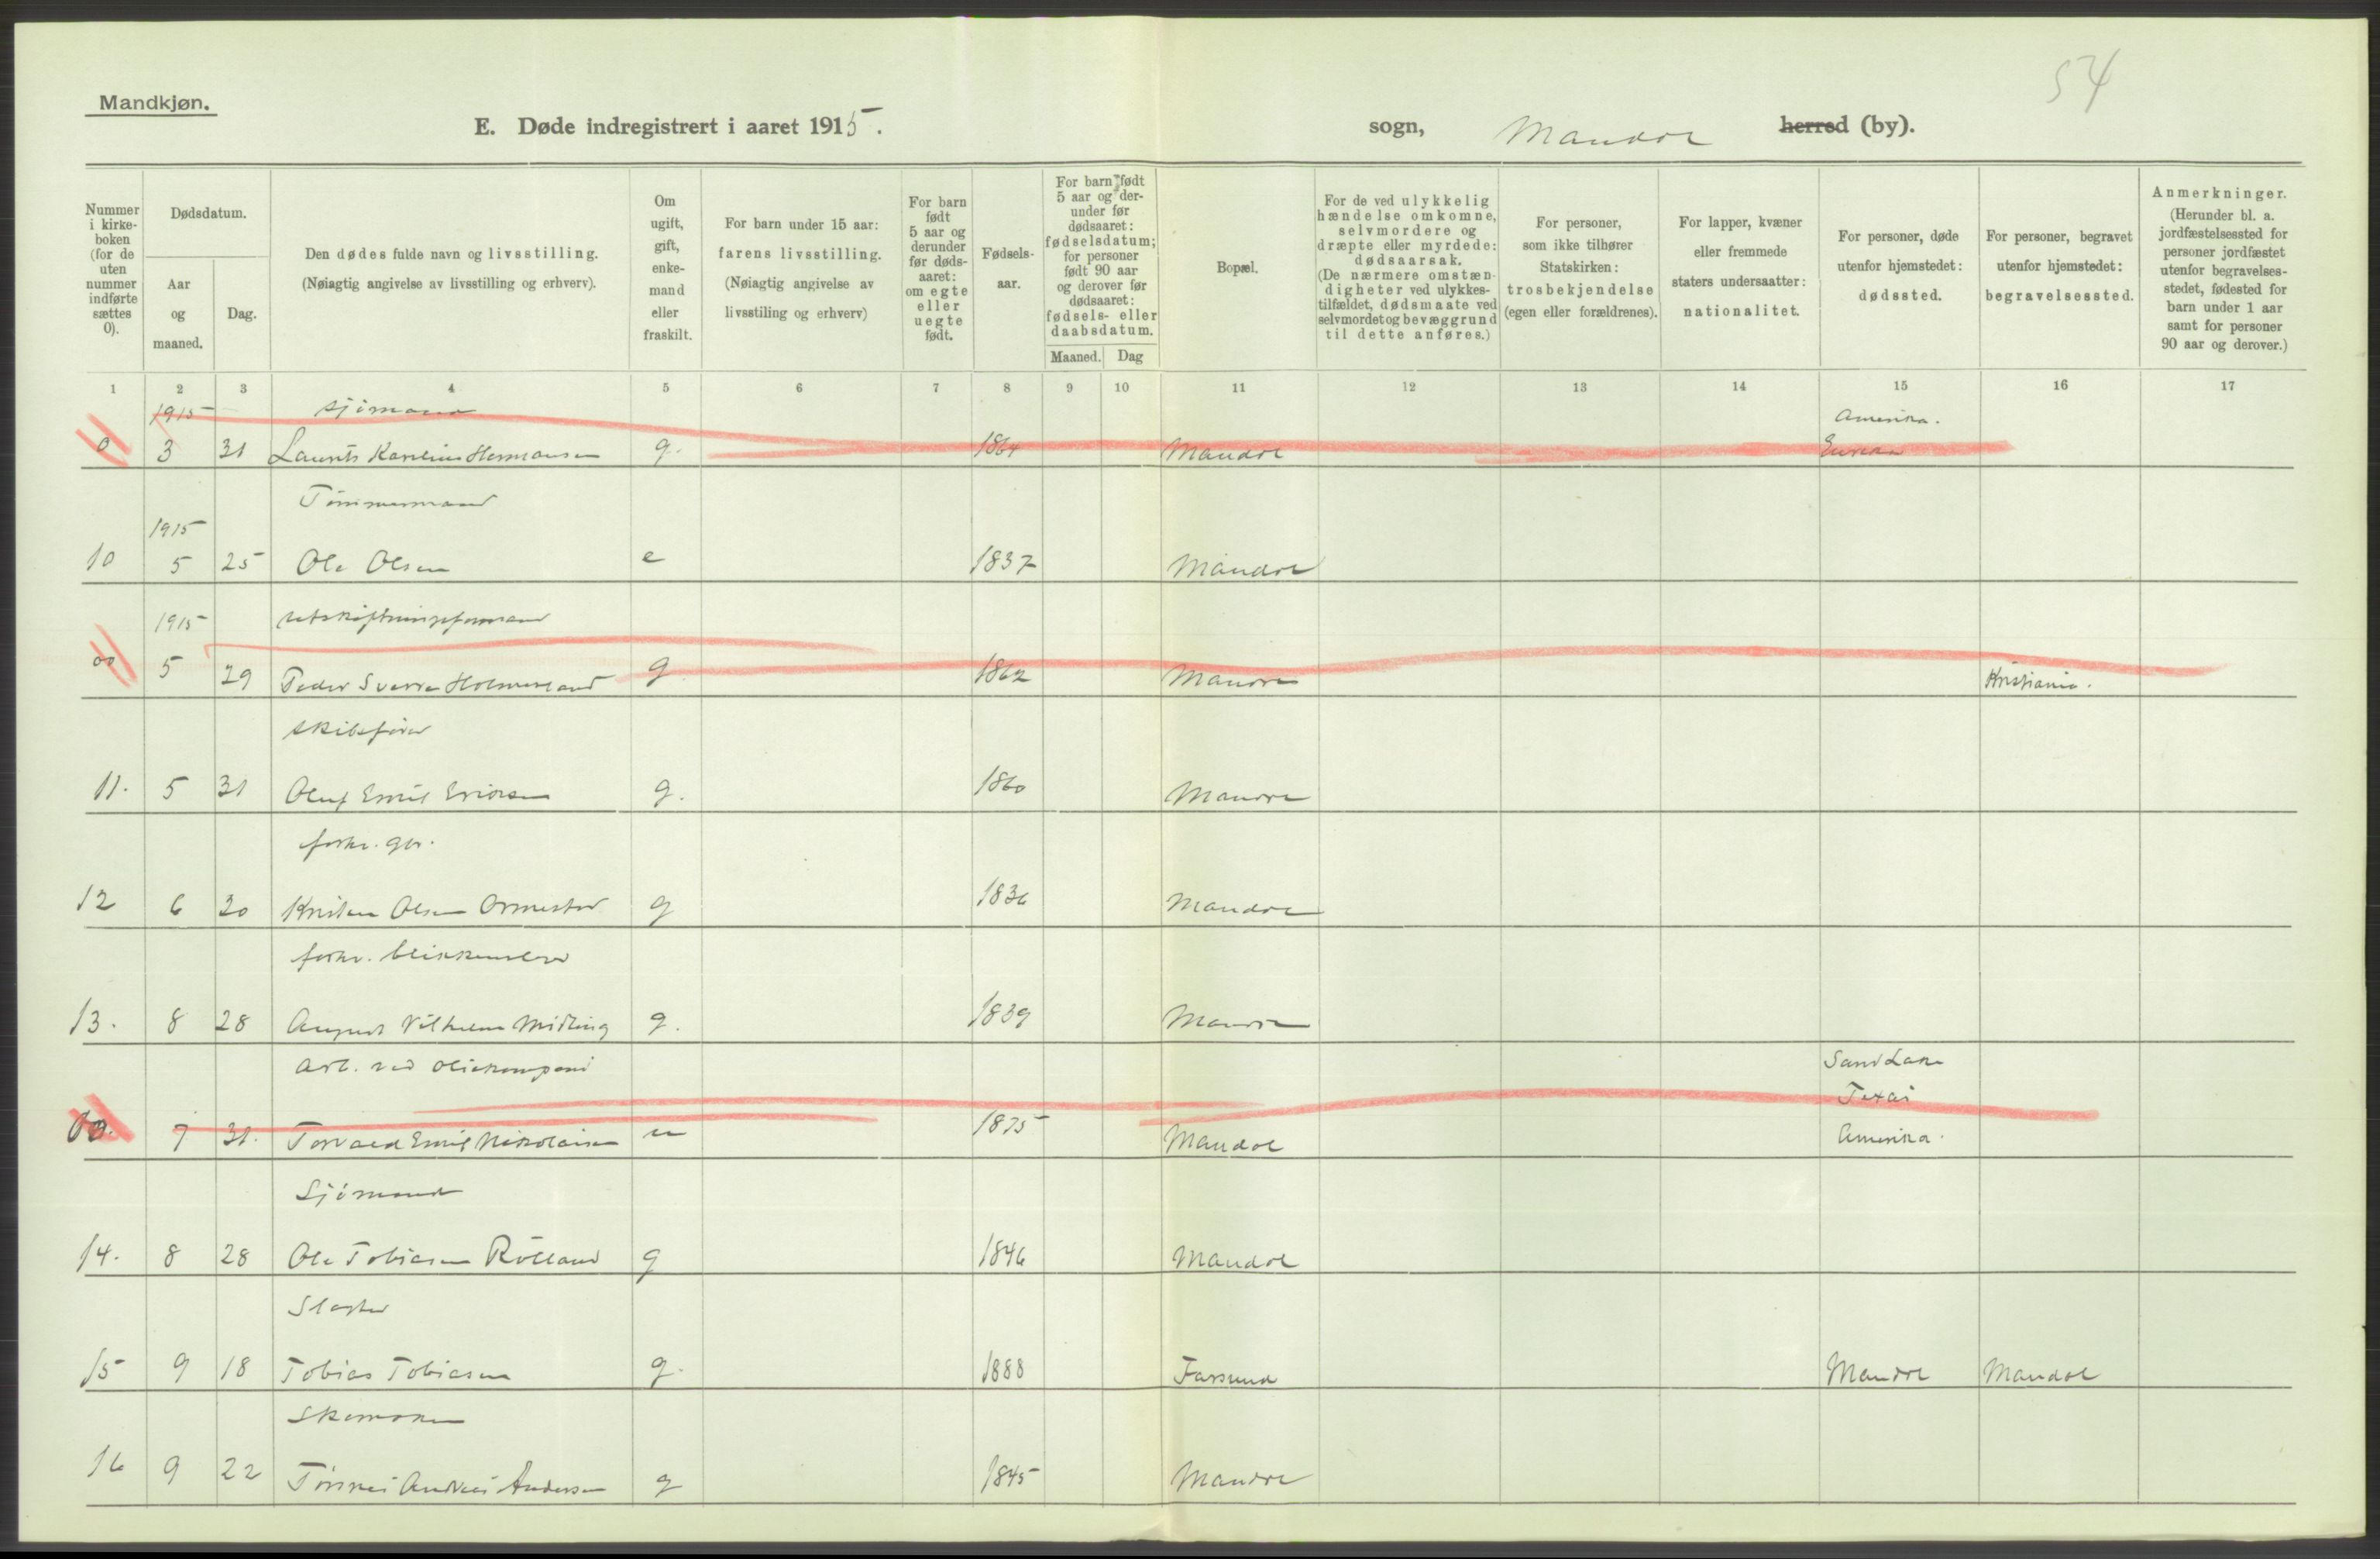 54
Mandkjøn.
E. Døde indregistrert i aaret 1915. sogn, Mandal herred (by).
Nummer i kirkeboken (for de uten nummer indførte sættes 0).
Dødsdatum.
Aar og maaned.
Dag.
Den dødes fulde navn og livsstilling.
(Nøiagtig angivelse av livsstilling og erhverv).
Om ugift, gift, enkemand eller fraskilt.
For barn under 15 aar: farens livsstilling.
(Nøiagtig angivelse av livsstiling og erhverv)
For barn født 5 aar og derunder før dødsaaret: om egte eller uegte født.
Fødselsaar.
For barn født 5 aar og derunder før dødsaaret: fødselsdatum; for personer født 90 aar og derover før dødsaaret: fødsels- eller daabsdatum.
Maaned. Dag
Bopæl.
For de ved ulykkelig hændelse omkomne, selvmordere og dræpte eller myrdede: dødsaarsak.
(De nærmere omstændigheter ved ulykkestilfældet, dødsmaate ved selvmordet og bevæggrund til dette anføres.)
For personer, som ikke tilhører Statskirken: trosbekjendelse (egen eller forældrenes).
For lapper, kvæner eller fremmede staters undersaatter: nationalitet.
For personer, døde utenfor hjemstedet: dødssted.
For personer, begravet utenfor hjemstedet: begravelsessted.
Anmerkninger.
(Herunder bl. a. jordfæstelsessted for personer jordfæstet utenfor begravelsesstedet, fødested for barn under 1 aar samt for personer 90 aar og derover.)
1 2 3 4 5 6 7 8 9 10 11 12 13 14 15 16 17
1915 sjømand Amerika.
0 3 31 Laurits Karelius Hermansen g. 1864 Mandal
Tømmermand
1915
10 5 25 Ole Olsen e 1837 Mandal
1915 utskiftningsformand
00 5 29 Peder Sverre Holmesland g 1862 Mandal Kristiania.
skibsfører
11. 5 31 Oluf Emil Eriksen g. 1860 Mandal
forhv. gbr.
12 6 20 Kristen Olsen Ormestad g 1836 Mandal
forhv. blikkenslager
13. 8 28 August Vilhelm Midling g. 1839 Mandal
Arb. ved oliekompani Sand Lake
Texas
7 31. Torvald Emil Nikolaisen u 1875 Mandal Amerika.
Sjømand
14. 8 28 Ole Tobiasen Rölland g 1846 Mandal
Slagter
15 9 18 Tobias Tobiasen g. 1888 Farsund Mandal Mandal
Skomaker
16 9 22 Tönnes Andreas Andersen g 1845 Mandal